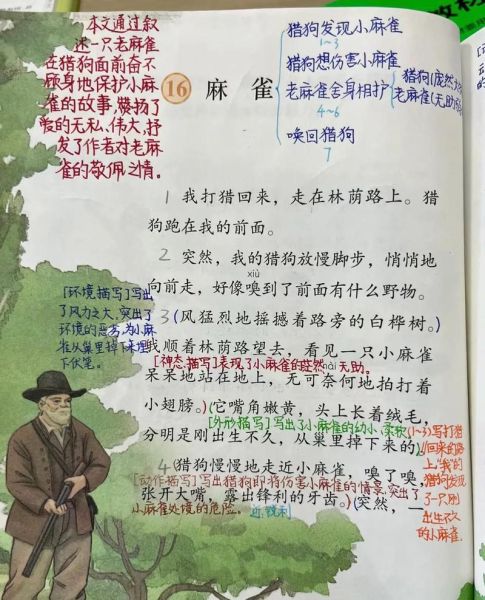 本文通过叙
述一只老麻雀
在猎狗面前奋不
顾身地保护小麻
雀的故事,赞扬了
爱的无私、伟大,抒
发了作者对老麻
雀的敬佩之情。
16 麻雀
猎狗发现小麻雀
1~3
猎狗想伤害小麻雀
老麻雀舍身相护
4~6
猎狗(庞然大
老麻雀(无助
唤回猎狗
7
1 我打猎回来,走在林荫路上。猎
狗跑在我的前面。
2 突然,我的猎狗放慢脚步,悄悄地
xiù
向前走,好像嗅到了前面有什么野物。
3 (风猛烈地摇撼着路旁的白桦树。)
[环境描写]写出
了风力之大,突出了
环境的恶劣,为小麻
雀从巢里掉下来埋
下伏笔。
我顺着林荫路望去,看见一只小麻雀
[神态描写]表现了小麻雀的茫然、无助。
nài
呆呆地站在地上,无可奈何地拍打着
小翅膀。)(它嘴角嫩黄,头上长着绒毛,
[外形描写]写出了小麻雀的幼小、柔软
分明是刚出生不久,从巢里掉下来的。)
(1~3)写打猎
回来的路
上,"我"的
猎狗发现
了一只刚
出生不久
的小麻雀.
4 (猎狗慢慢地走近小麻雀,嗅了嗅,
[动作描写]写出猎狗即将伤害小麻雀的情景,突出了
张开大嘴,露出锋利的牙齿。)(突然,一
小麻雀处境的危险。
近:锐利